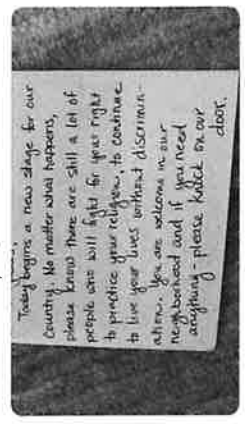 Today begins a new stage for our
country. No matter what happens,
please know there are still a lot of
people who will fight for your right
to practice your religion, to continue
to live your lives without discrimin-
ation. You are welcome in our
neighborhood and if you need
anything - please knock on our
door.